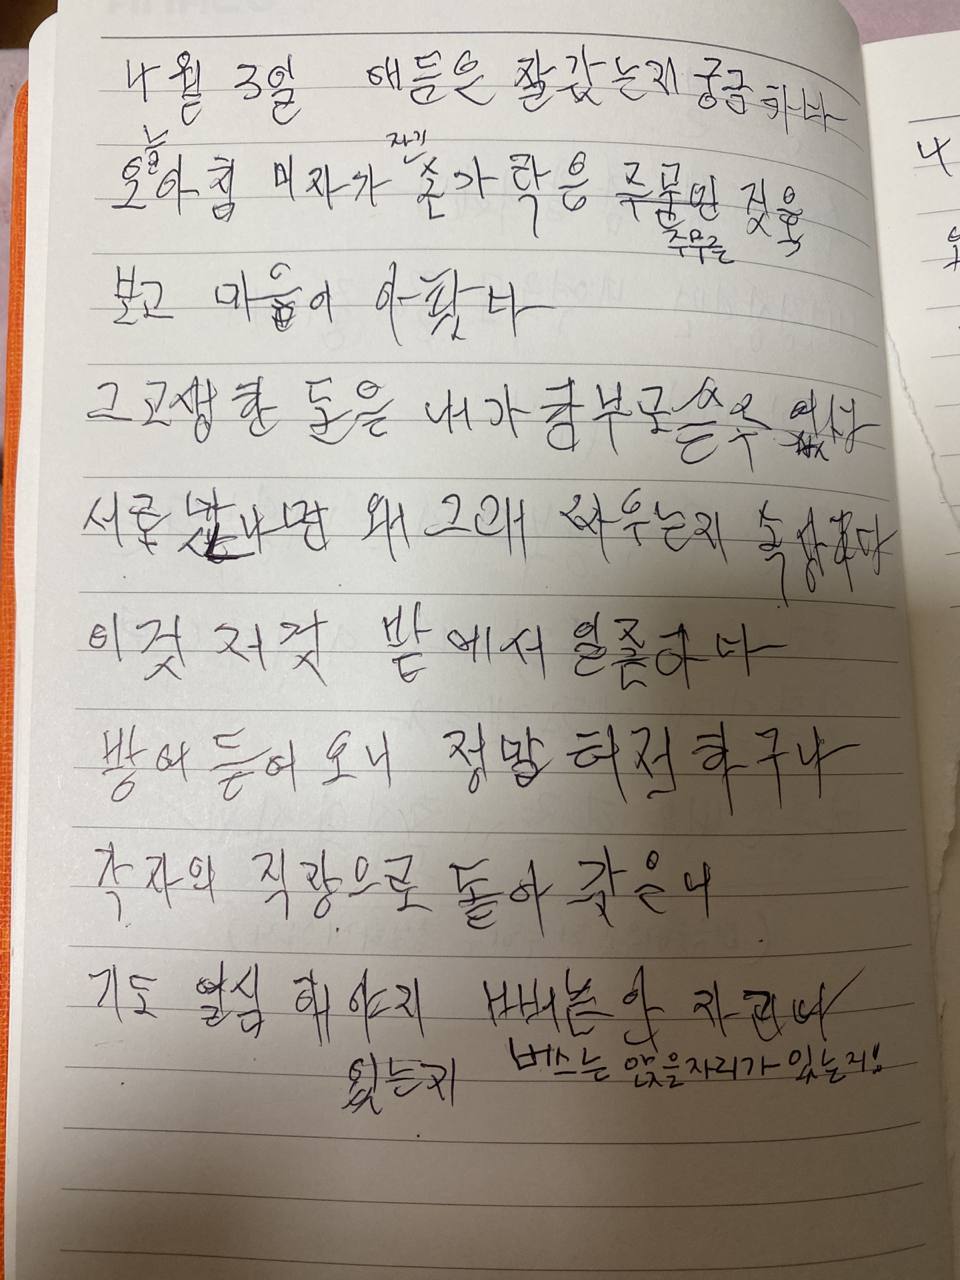 4월 3일 애들은 잘갔는지 궁금하다
늘 자기
오아침 미자가 손가락은 주물먼 것을
주무른
보고 마음이 아팠다
그 고생한 돈을 내가 함부로 쓸수 없
서로 만나면 왜 그래 싸우는지 속상
이것 저것 밭에서 일좀하다
방에 들어 오니 정말 허전하구나
각자의 직장으로 돌아 갔으니
기도 열심 해야지 안 자리나
있는지 버스는 앉을자리가 있는지!
나